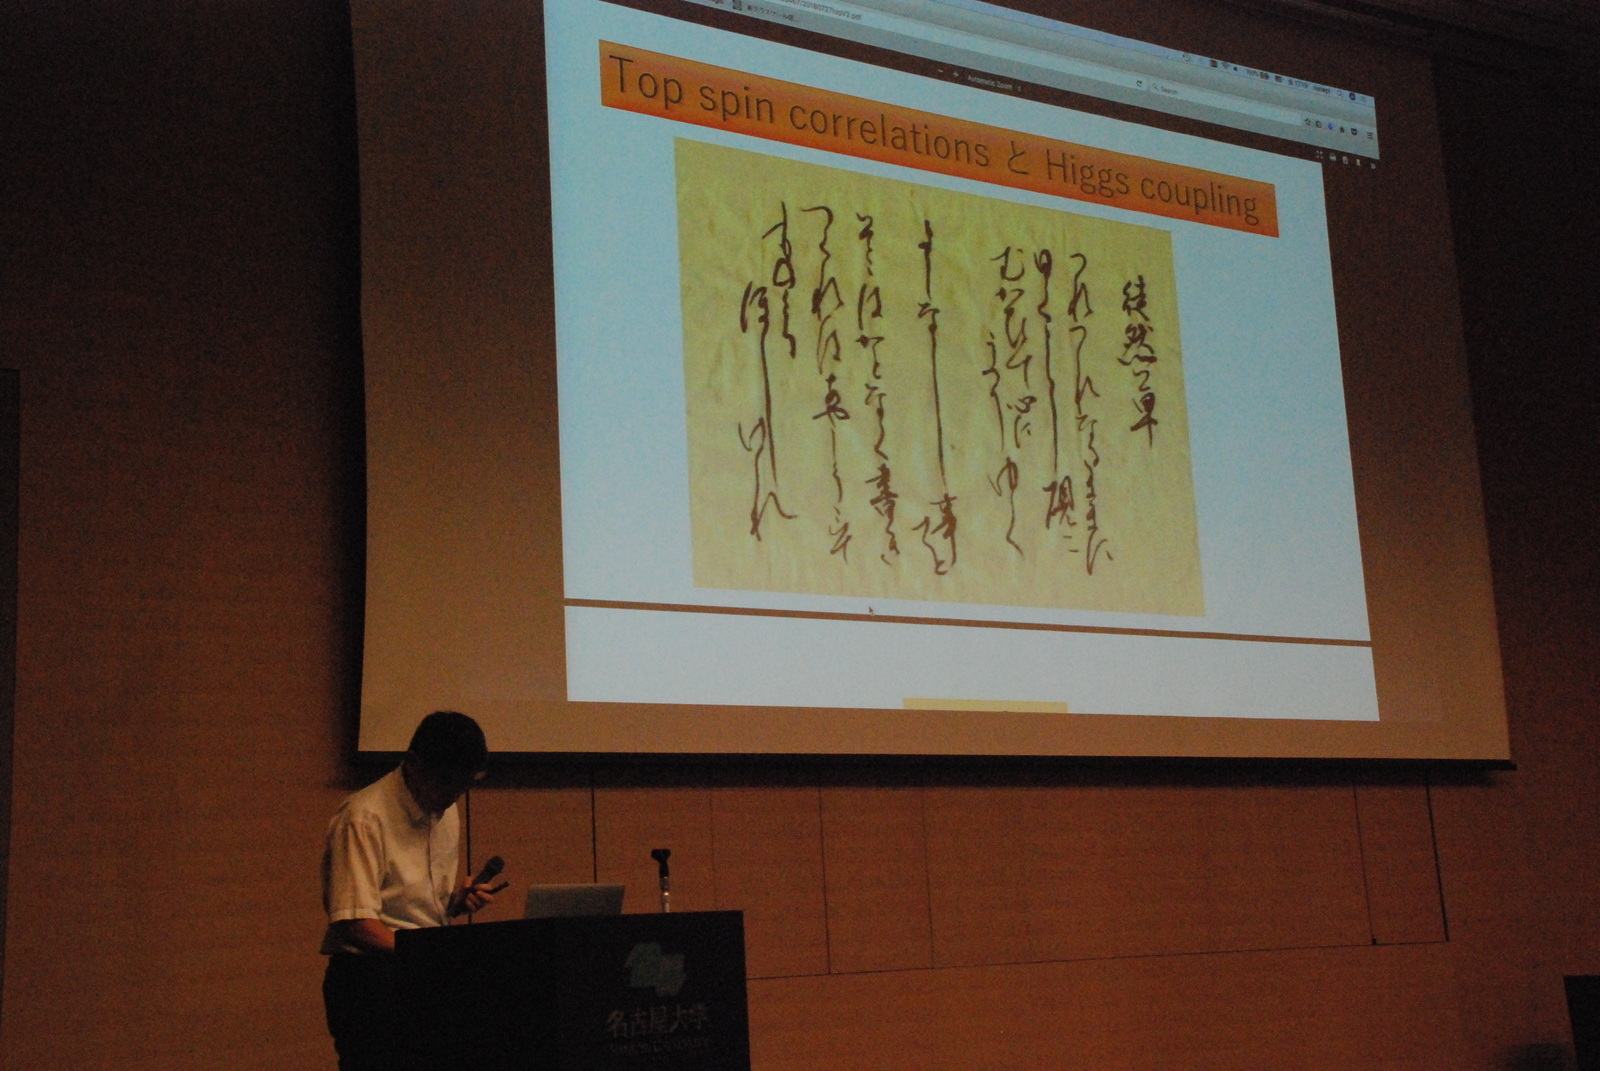 Automatic Zoom
Search
Top spin correlations と Higgs coupling
徒然草
つれつれなるままに
日くらし硯に
むかひて心に
うつりゆく
よしなし事を
そこはかとなく書き
つくれはあやしうこそ
ものくる
ほしけれ
名古屋大学
NAGOYA UNIVERSITY